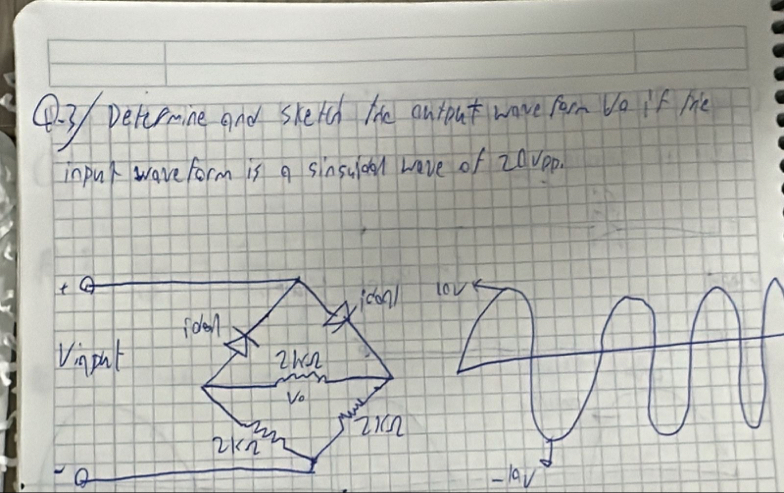 Q-3/ Determine and sketch the output wave form Vo if the
input waveform is a sinsuidal wave of 20Vpp.
+
10V
ideal
ideal
2KΩ
Vinput
Vo
2KΩ
2KΩ
-
-10V